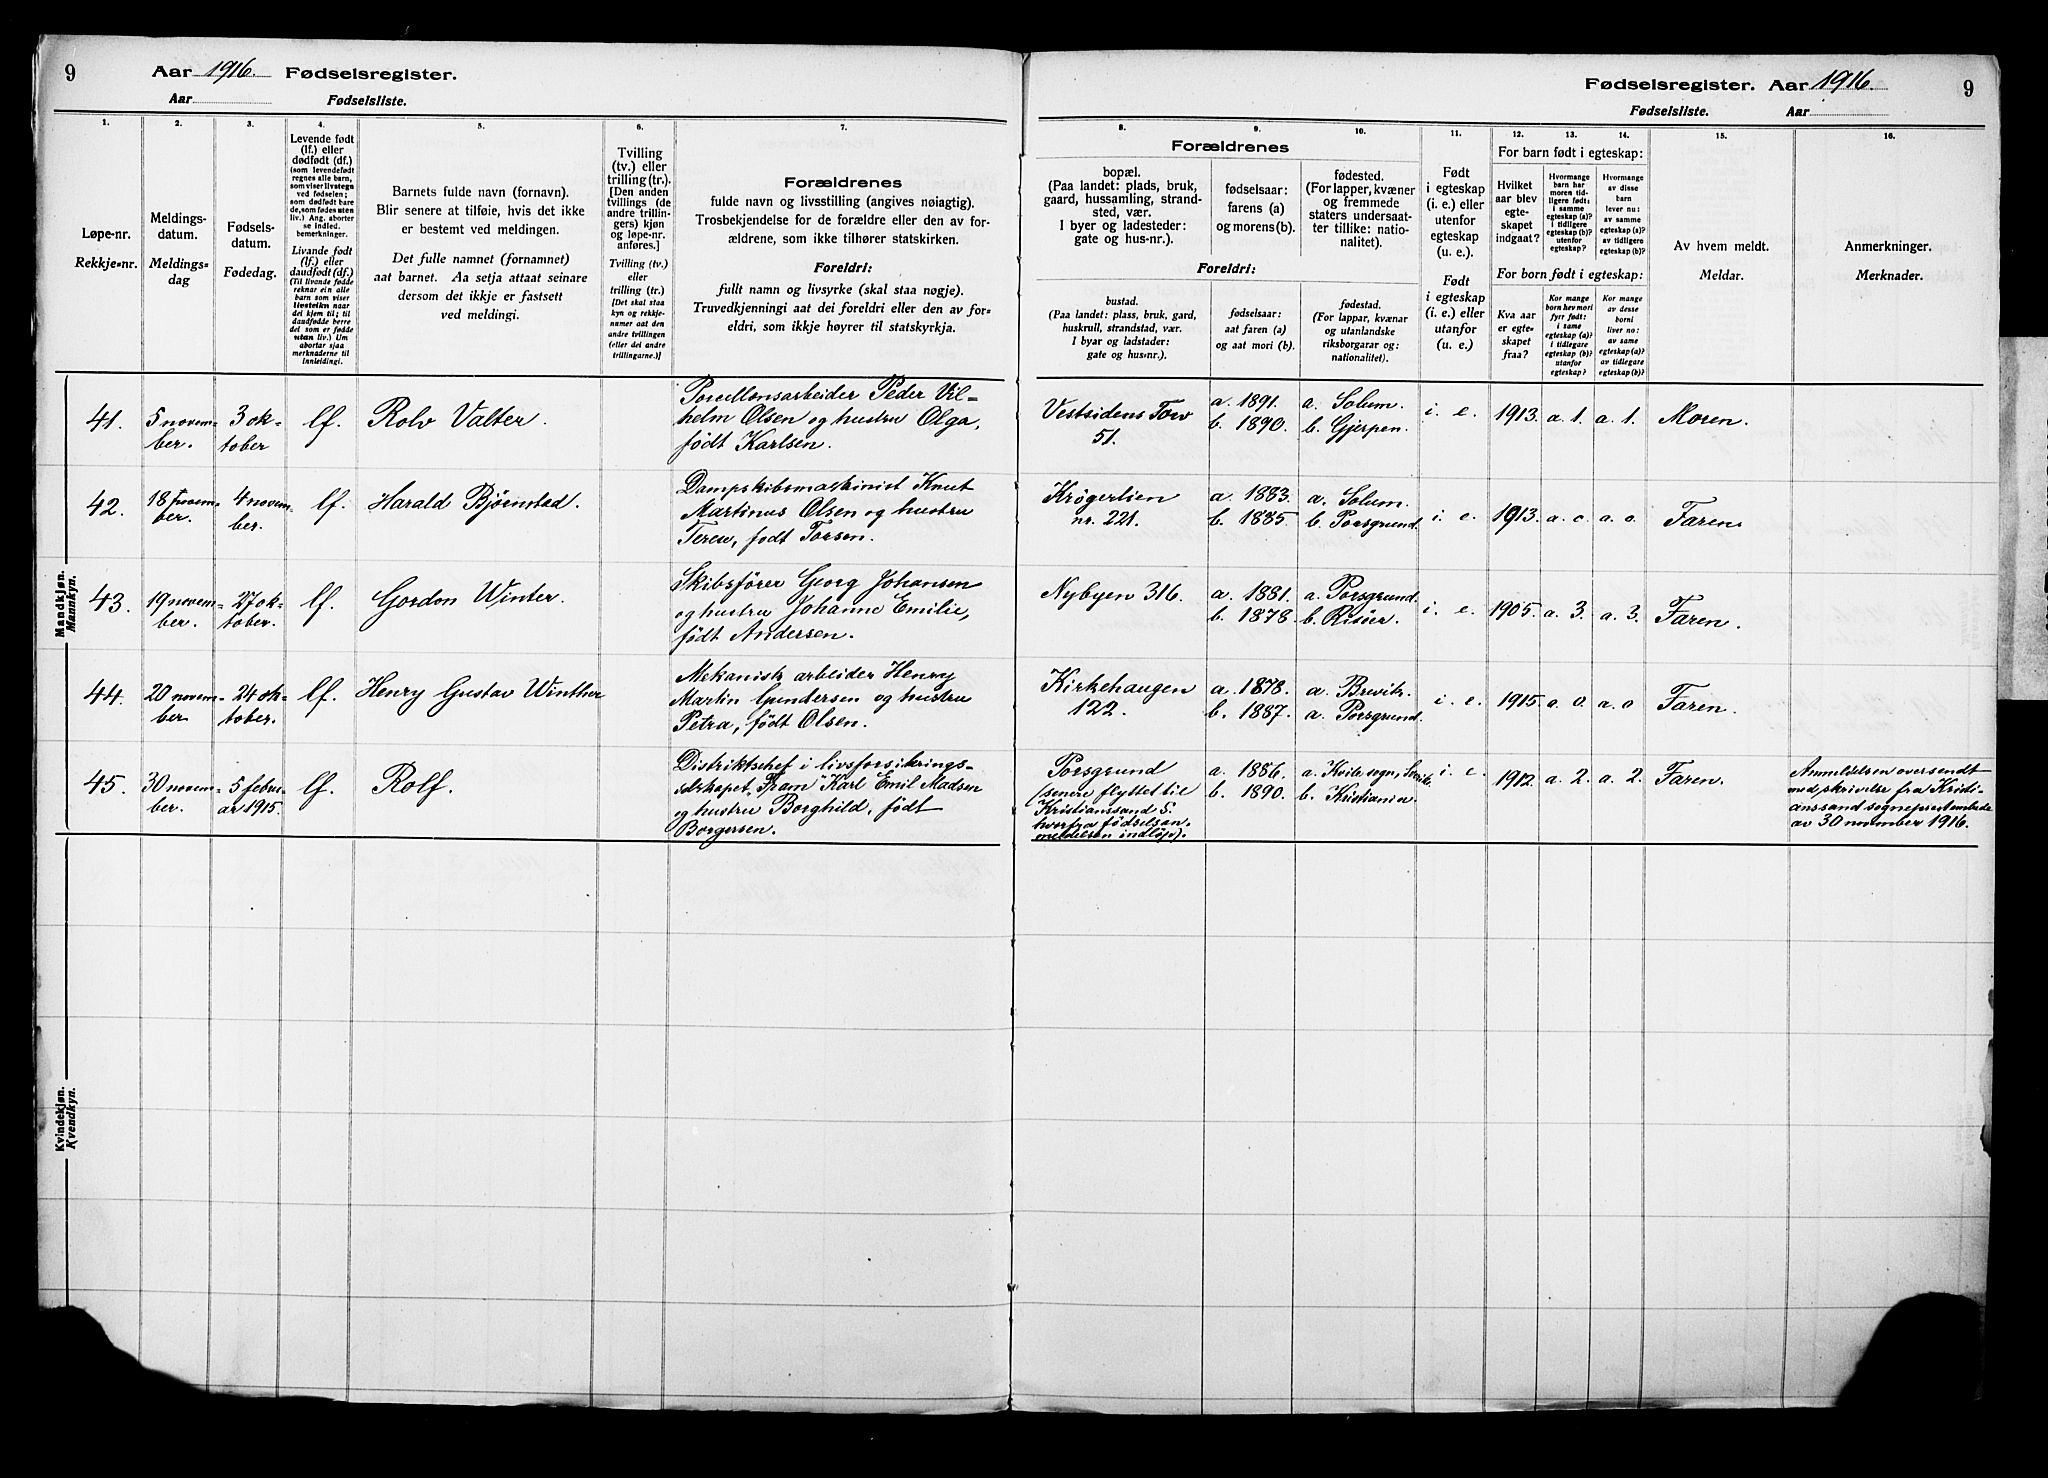 9
Aar 1916. Fødselsregister.
Aar
Fødselsliste.
1.
Løpe-nr.
Rekkje=nr.
2.
Meldings-
datum.
Meldings=
dag
3.
Fødsels-
datum.
Fødedag.
4.
Levende født
(lf.) eller
dødfødt (df.)
(som levendefødt
regnes alle barn,
som viser livstegn
ved fødselen;
som dødfødt bare
de, som fødes uten
liv.) Ang. aborter
se indled.
bemerkninger.
Livande født
(lf.) eller
daudfødt (df.)
(Til livande fødde
reknar ein alle
barn som viser
livsteikn naar
dei kjem til; til
daudfødde berre
dei som er fødde
utan liv.) Um
abortar sjaa
merknaderne til
innleidingi.
5.
Barnets fulde navn (fornavn).
Blir senere at tilføie, hvis det ikke
er bestemt ved meldingen.
Det fulle namnet (fornamnet)
aat barnet. Aa setja attaat seinare
dersom det ikkje er fastsett
ved meldingi.
6.
Tvilling
(tv.) eller
trilling (tr.).
[Den anden
tvillings (de
andre trillin-
gers) kjøn
og løpe-nr.
anføres.]
Tvilling (tv.)
eller
trilling (tr.)
[Det skal staa
kyn og rekkje-
numer aat den
andre tvillingen
(eller dei andre
trillingarne.)]
7.
Forældrenes
fulde navn og livsstilling (angives nøiagtig).
Trosbekjendelse for de forældre eller den av for-
ældrene, som ikke tilhører statskirken.
Foreldri:
fullt namn og livsyrke (skal staa nøgje).
Truvedkjenningi aat dei foreldri eller den av for=
eldri, som ikkje høyrer til statskyrkja.
Mandkjøn.
Mannkyn.
41.
5 novem-
ber.
3 ok-
tober
lf.
Rolv Valter.
Porcellænsarbeider Peder Vil=
helm Olsen og hustru Olga,
født Karlsen.
42.
18 novem-
ber.
4 novem-
ber.
lf.
Harald Bjørnstad.
Dampskibsmaskinist Knut
Martinus Olsen og hustru
født Torsen.
43.
19 novem-
ber.
27 ok-
tober.
lf.
Gordon Winter.
Skibsfører Georg Johansen
og hustru Johanne Emilie,
født Andersen.
44.
20 novem-
ber
24 ok-
tober.
lf.
Henry Gustav Winther
Mekanisk arbeider Henry
Martin Gundersen og hustru
Petra, født Olsen.
45.
30 novem-
ber.
5 febru-
ar 1915.
lf.
Rolf.
Distriktschef i livsforsikrings-
selskapet "Fram" Karl Emil Madsen
og hustru Borghild, født
Borgersen.
Kvindekjøn.
Kvendkyn.
Fødselsregister. Aar 1916.
9
Fødselsliste.
Aar
Forældrenes
8.
bopæl.
(Paa landet: plads, bruk,
gaard, hussamling, strand-
sted, vær.
I byer og ladesteder:
gate og hus-nr.).
9.
fødselsaar:
farens (a)
og morens (b).
10.
fødested.
(For lapper, kvæner
og fremmede
staters undersaat-
ter tillike: natio-
nalitet).
Foreldri:
bustad.
(Paa landet: plass, bruk, gard,
huskrull, strandstad, vær.
I byar og ladstader:
gate og hus=nr.).
fødselsaar:
aat faren (a)
og aat mori (b).
fødestad.
(For lappar, kvænar
og utanlandske
riksborgarar og:
nationalitet).
11.
Født
i egteskap
(i. e.) eller
utenfor
egteskap
(u. e.).
Født
i egteskap
(i. e.) eller
utanfor
(u. e.).
For barn født i egteskap:
12.
Hvilket
aar blev
egte-
skapet
indgaat?
13.
Hvormange
barn har
moren tid-
ligere født:
i samme
egteskap (a)?
i tidligere
egteskap (b)?
utenfor
egteskap?
14.
Hvormange
av disse
barn
lever nu:
av samme
egteskap (a)?
av tidligere
egteskap (b)?
For born født i egteskap:
Kva aar
er egte=
skapet
fraa?
Kor mange
born hev mori
fyrr født:
i same
egteskap (a)?
i tidlegare
egteskap (b)?
utanfor
egteskap?
Kor mange
av desse
borni
liver no:
av same
egteskap (a)?
av tidlegare
egteskap (b)?
15.
Av hvem meldt.
Meldar.
16.
Anmerkninger.
Merknader.
Vestsidens Torv
51.
a. 1891.
b. 1890.
a. Solum.
b. Gjerpen.
i. e.
1913.
a. 1.
a. 1.
Moren.
Krøgerlien
nr. 221.
a. 1883.
b. 1885.
a. Solum.
b. Porsgrund.
i. e.
1913.
a. o.
a. o.
Faren
Nybyen 316.
a. 1881.
b. 1878.
a. Porsgrund.
b. Risöer.
i. e.
1905.
a. 3.
a. 3.
Faren.
Kirkehaugen
122.
a. 1878.
b. 1887.
a. Brevik.
a. Porsgrund.
i. e.
1915.
a. o.
a. o
Faren.
Porsgrund
(senere flyttet til
Kristianssand S.
hvorfra fødselsan.
meldelsen indløp).
a. 1886.
b. 1890.
a. Kvile sogn,
b. Kristiania.
i. e.
1912.
a. 2.
a. 2.
Faren.
Anmeldelsen oversendt
med skrivelse fra Kristi-
anssand sogneprestembede
av 30 november 1916.